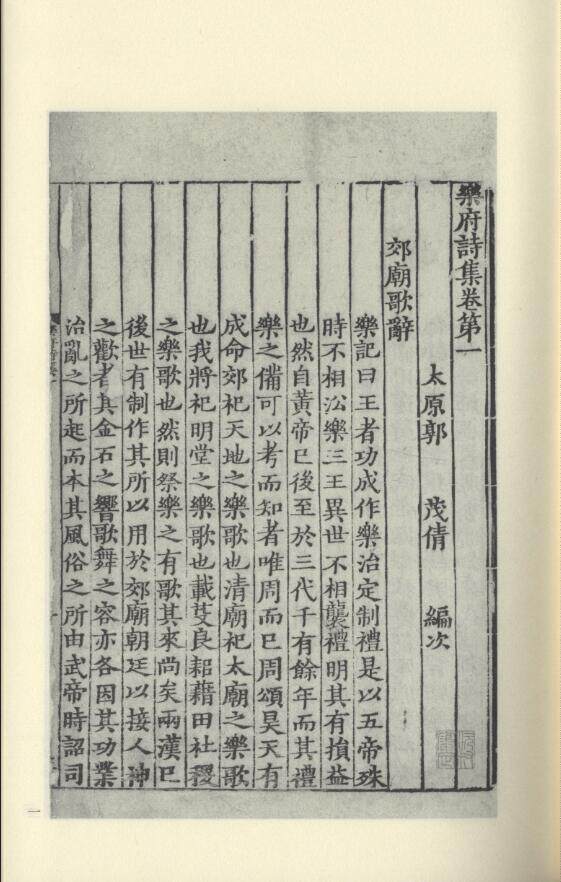 樂府詩集卷第一
太原郭 茂倩 編次
郊廟歌辭
樂記曰王者功成作樂治定制禮是以五帝殊
時不相㳂樂三王異世不相襲禮明其有損益
也然自黃帝已後至於三代千有餘年而其禮
樂之備可以考而知者唯周而已周頌昊天有
成命郊祀天地之樂歌也清廟祀太廟之樂歌
也我將祀明堂之樂歌也載芟良耜藉田社稷
之樂歌也然則祭樂之有歌其來尚矣兩漢已
後世有制作其所以用於郊廟朝廷以接人神
之歡者其金石之響歌舞之容亦各因其功業
治亂之所起而本其風俗之所由武帝時詔司
一